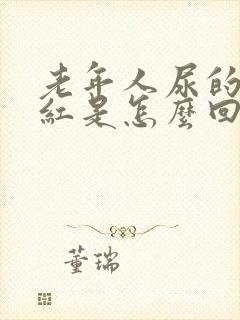 老年人尿的
紅是怎麼回
董瑞